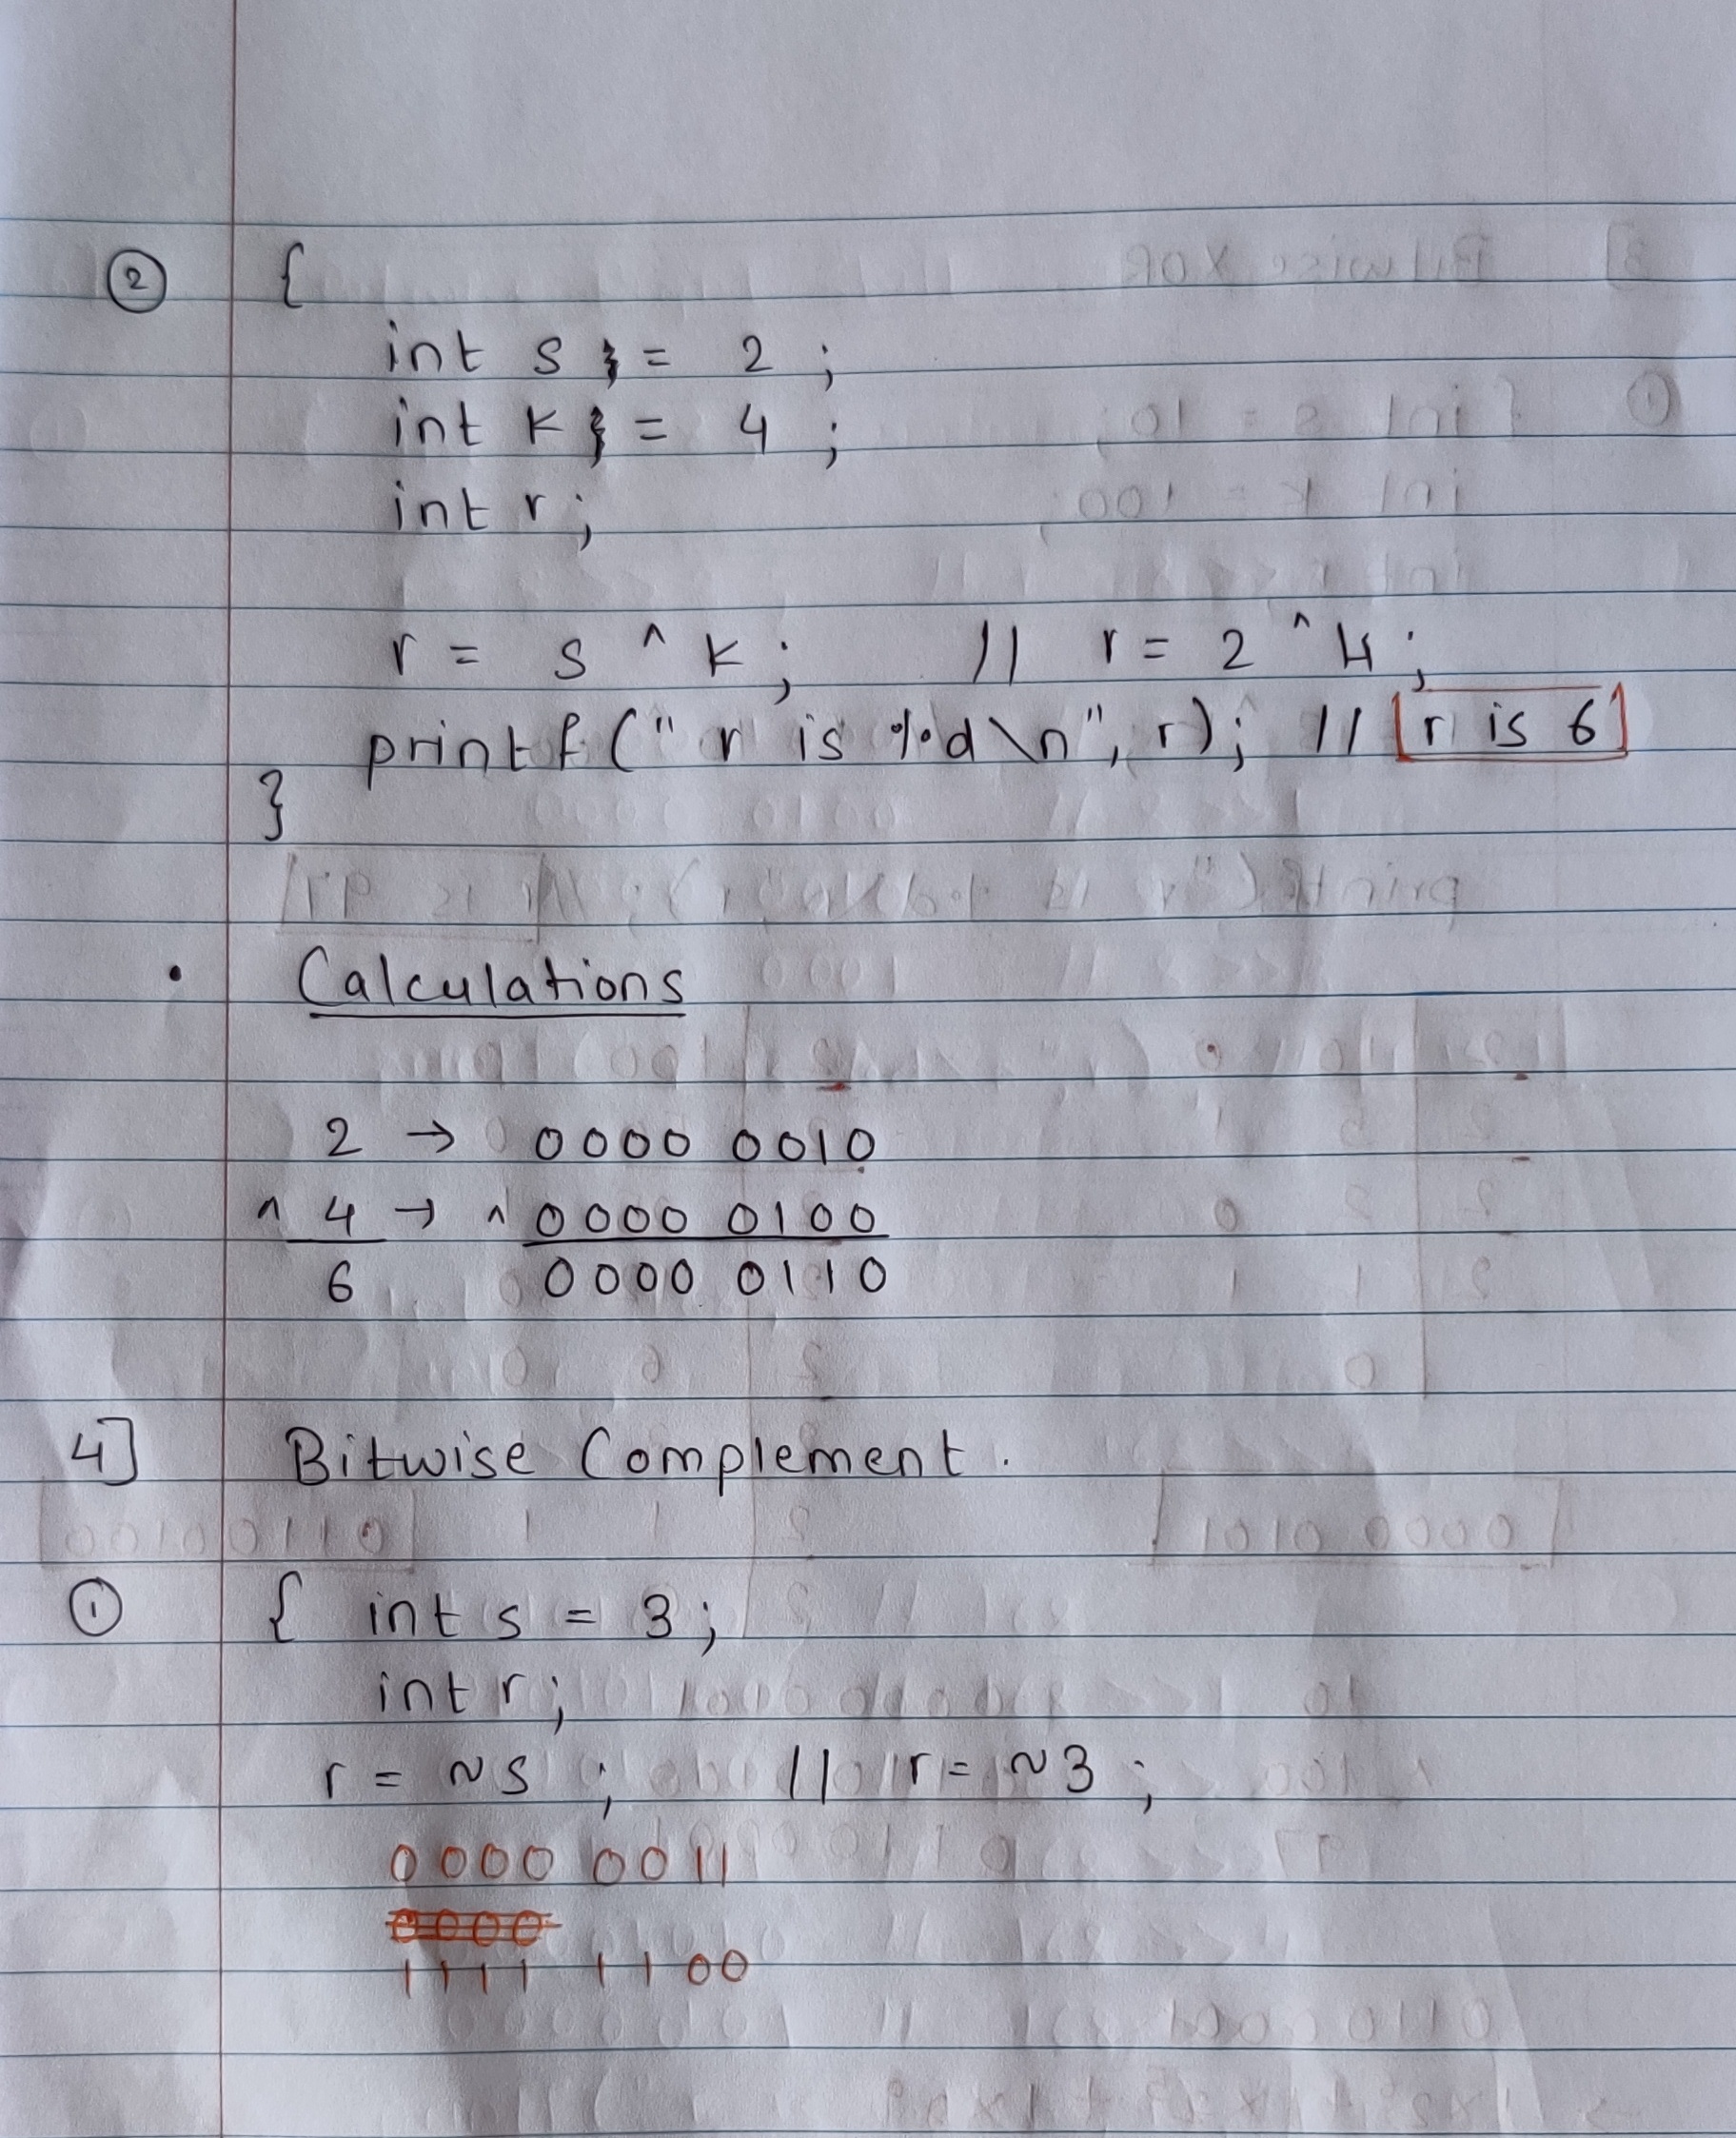 ② {
int s = 2 ;
int k = 4 ;
int r;
r = s ^ k ; // r = 2 ^ 4 ;
printf (" r is %d \n", r); // r is 6
}
• Calculations
2 → 0000 0010
^ 4 → ^ 0000 0100
6 0000 0110
4] Bitwise Complement .
① { int s = 3 ;
int r;
r = ~s ; // r = ~3 ;
0000 0011
0000
1111 1100